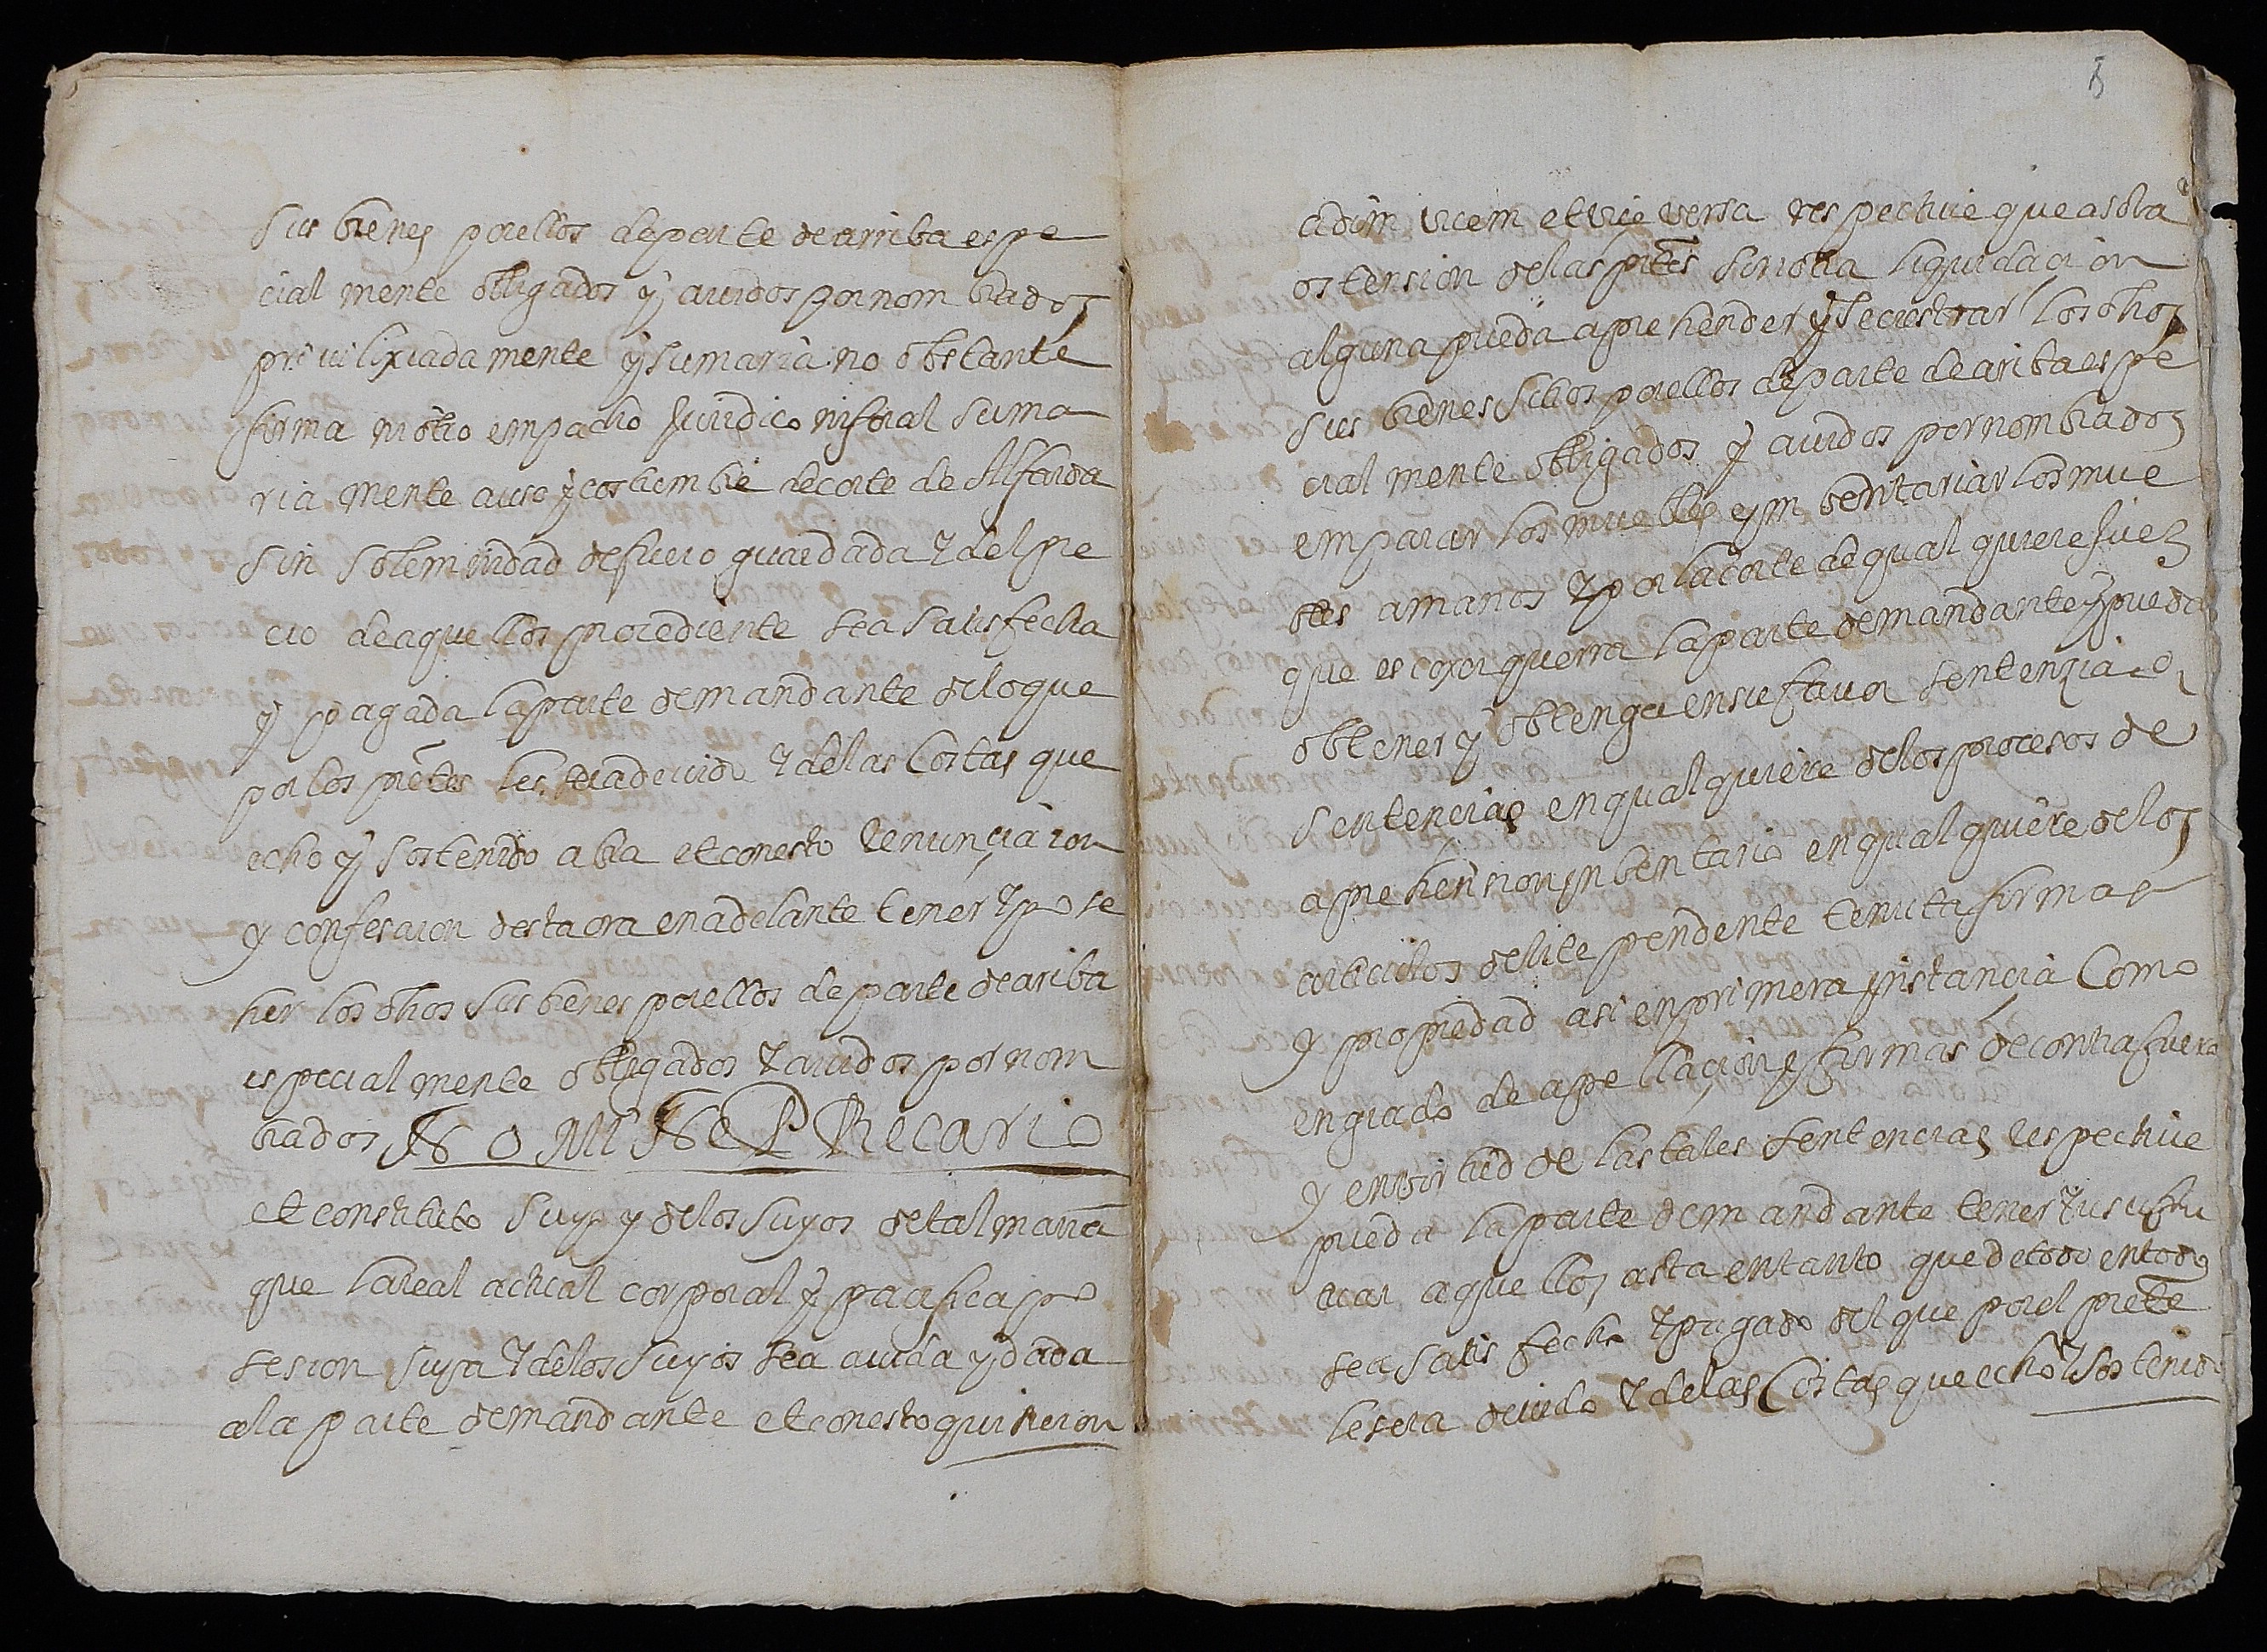 sus bienes por ellos de parte de arriba espe
cial mente obligados y auidos por nom brados
priuilixiada mente y sumaria no obstante
firma ni otro empacho Juridico ni foral suma
ria mente a uso y costumbre de corte de Alfarda
sin solemnidad de fuero guardada y del pre
cio de aquellos procediente sea satisfecha
y pagada la parte demandante de lo que
por los pntes les sera deuido y de las Costas que
echo y sostenido abra et con esto renunciaron
y confesaron desta ora en adelante tener y po se
her los dhos sus bienes por ellos de parte de ariba
especial mente obligados y auidos por nom
brados NOMINE PRecario
et constituto suyo y de los suyos de tal mana
que la real actual corporal y pacifica po
sesion suya y de los suyos sea auida y dada
a la parte demandante et con esto quisieron
5
ad in vicem et vice versa respective que a sola
ostension de las pntes sin otra liquidacion
alguna pueda aprehender y secrestrar los dhos
sus bienes sitios por ellos de parte de ariba espe
cial mente obligados y auidos por nombrados
emparar los muebles e ym bentariar los mue
bles a manos y por la corte de qual quiere Juez
que escoxer querra la parte demandante y pueda
obtener y obtenga en su fauor sentenzia o
sentencias en qual quiere de los procesos de
aprehension ynbentario en qual quiere de los
articulos de lite pendente tenuta firmas
y propiedad asi en primera ynstancia Como
en grado de apellacion y firmas de contrafuero
y en virtud de las tales sentencias respective
pueda la parte demandante tener y usufru
tuar aquellos asta en tanto que de todo en todo
sea satis fecha y pagado del que por el pnte
le sera deuido y de las Costas que echo y sostenido